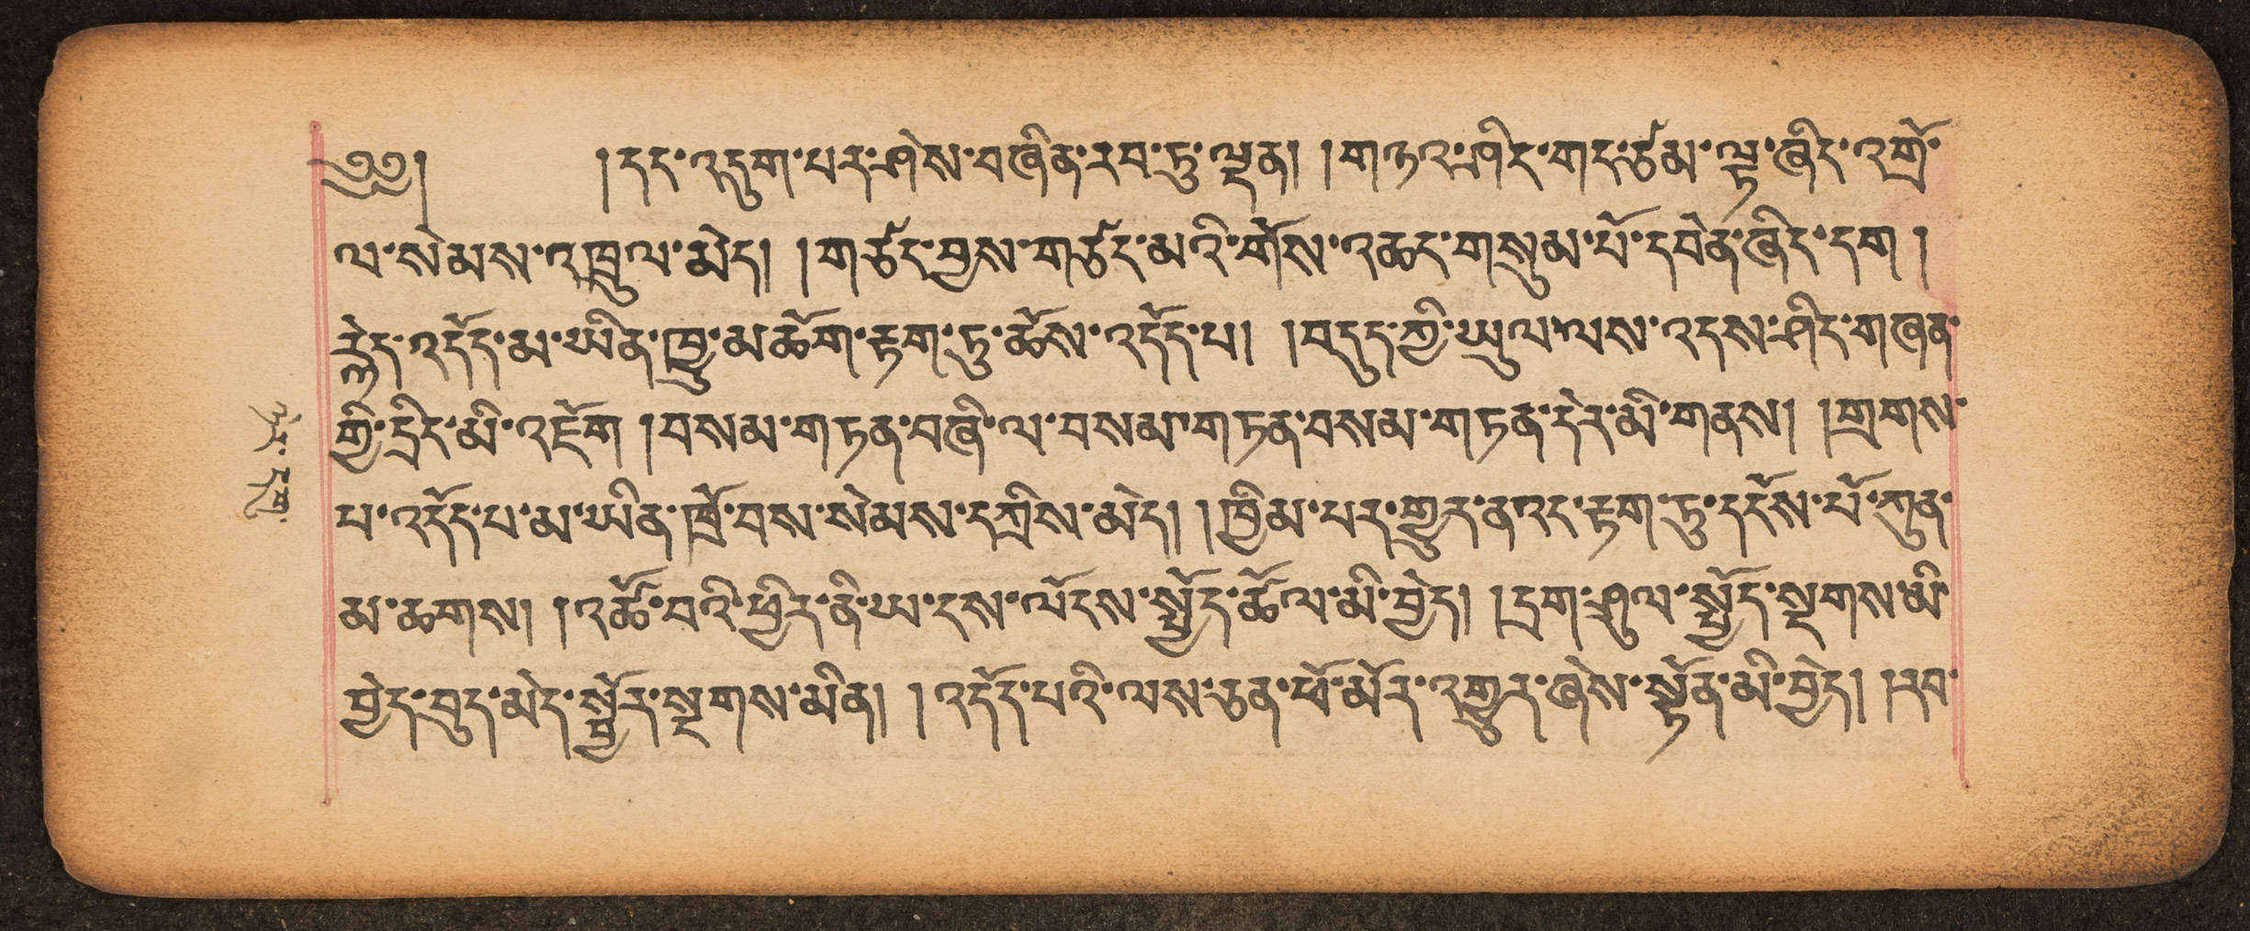 ༄༅། །དང་འདུག་པར་ཤེས་བཞིན་རབ་ཏུ་ལྡན། །གཉའ་ཤིང་གང་ཙམ་ལྟ་ཞིང་འགྲོ་
ལ་སེམས་འཁྲུལ་མེད། །གཙང་བྱས་གཙང་མའི་གོས་འཆང་གསུམ་པོ་དབེན་ཞིང་དག །
རྙེད་འདོད་མ་ཡིན་ཁྱུ་མཆོག་རྟག་ཏུ་ཆོས་འདོད་པ། །བདུད་ཀྱི་ཡུལ་ལས་འདས་ཤིང་གཞན་
གྱི་དྲིང་མི་འཇོག །བསམ་གཏན་བཞི་ལ་བསམ་གཏན་བསམ་གཏན་དེར་མི་གནས། །གྲགས་
པ་འདོད་པ་མ་ཡིན་ཁྲོ་བས་སེམས་དཀྲིས་མེད། །ཁྱིམ་པར་གྱུར་ནའང་རྟག་ཏུ་དངོས་པོ་ཀུན་
མ་ཆགས། །འཚོ་བའི་ཕྱིར་ནི་ཡ་ངས་ལོངས་སྤྱོད་ཚོལ་མི་བྱེད། །དྲག་ཤུལ་སྤྱོད་སྔགས་མི་
བྱེད་བུད་མེད་སྦྱོར་སྔགས་མིན། །འདོད་པའི་ལས་ཅན་ཕོ་མོར་འགྱུར་ཞེས་སྟོན་མི་བྱེད། །རབ་